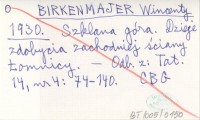 BIRKENMAJER Wincenty
1930. Szklana góra. Dzieje
zdobycia zachodniej ściany
Łomnicy. - Odb. z: Tat:
14, nr 4: 74-140. CBG
BT 1005/0450